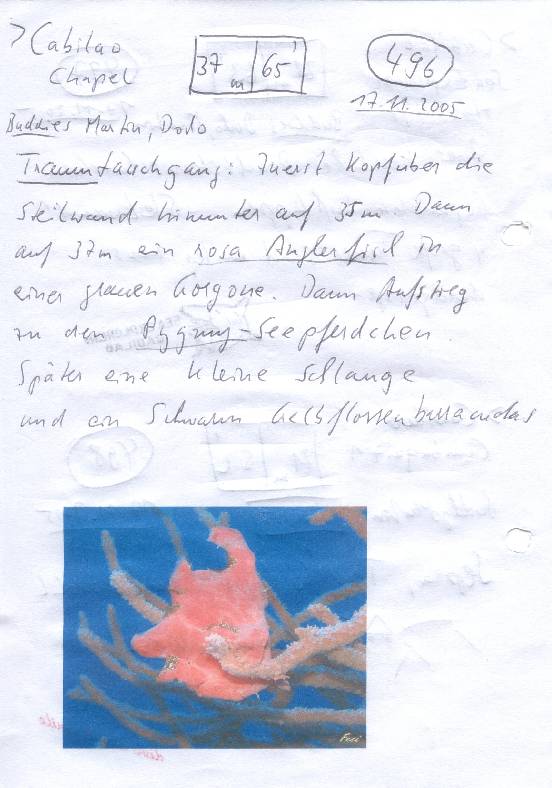 > Cabilao
Chapel
37 m 65'
496
17.11.2005
Buddies Martin, Dodo
Traumtauchgang: Zuerst Kopfüber die
Steilwand hinunter auf 35m. Dann
auf 37m ein rosa Anglerfisch in
einer grauen Gorgone. Dann Aufstieg
zu den Pygmy-Seepferdchen.
Später eine kleine Schlange
und ein Schwarm Gelbflossenbarracudas